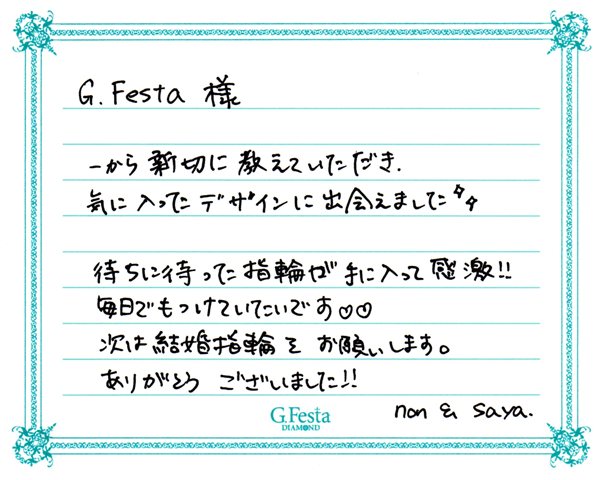 G.Festa 様
一から親切に教えていただき、
気に入ったデザインに出会えました
待ちに待った指輪が手に入って感激!!
毎日でもつけていたいです♡♡
次は結婚指輪をお願いします。
ありがとう ございました!!
non & saya.
G.Festa
DIAMOND